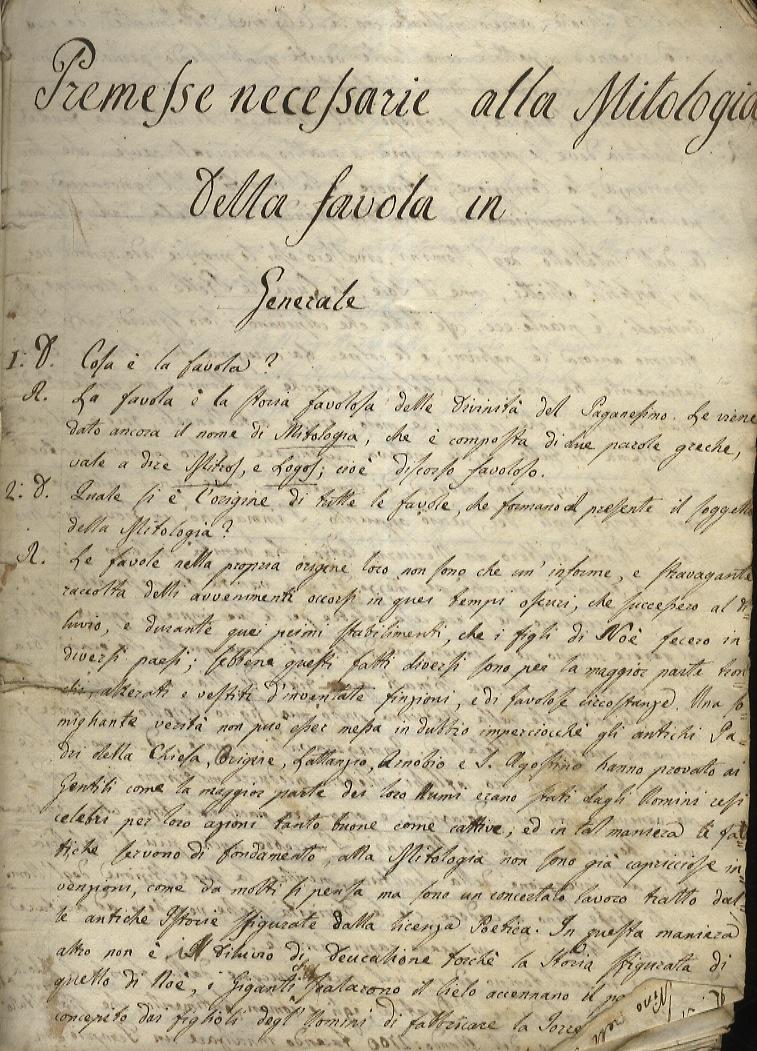 Premesse necessarie alla Mitologia
Della favola in
Generale
1: D. Cosa è la favola?
R. La favola è la storia favolosa delle Divinità del Paganesimo. Le viene
dato ancora il nome di Mitologia, che è composta di due parole greche,
vale a dire Mitos, e Logos; cioè discorso favoloso.
2: D. Quale si è l'origine di tutte le favole, che formano al presente il soggetto
della Mitologia?
R. Le favole nella propria origine loro non sono che un' informe, e stravagante
raccolta delli avvenimenti occorsi in quei tempi oscuri, che successero al di=
luvio, e durante quei primi stabilimenti, che i figli di Noè fecero in
diversi paesi; sebbene questi fatti diversi sono per la maggior parte tron=
chi, alterati e vestiti d'inventate finzioni, e di favolose circostanze. Una so=
migliante verità non può esser messa in dubbio imperciocchè gli antichi Pa=
dri della Chiesa, Origine, Lattanzio, Arnobio e S. Agostino hanno provato ai
Gentili come la maggior parte dei loro Numi erano stati dagli Uomini resi
celebri per loro azioni tanto buone come cattive; ed in tal maniera le fat=
tiche servono di fondamento, alla Mitologia non sono già capricciose in=
venzioni, come da molti si pensa ma sono un concertato lavoro tratto dal=
le antiche Istorie sfigurate dalla licenza Poetica. In questa maniera
altro non è Il Diluvio di Deucalione forchè la Storia sfigurata di
quello di Noè, i Giganti scalarono il Cielo accennano il
concepito dai figlioli degl' Uomini di fabbricare la Torre